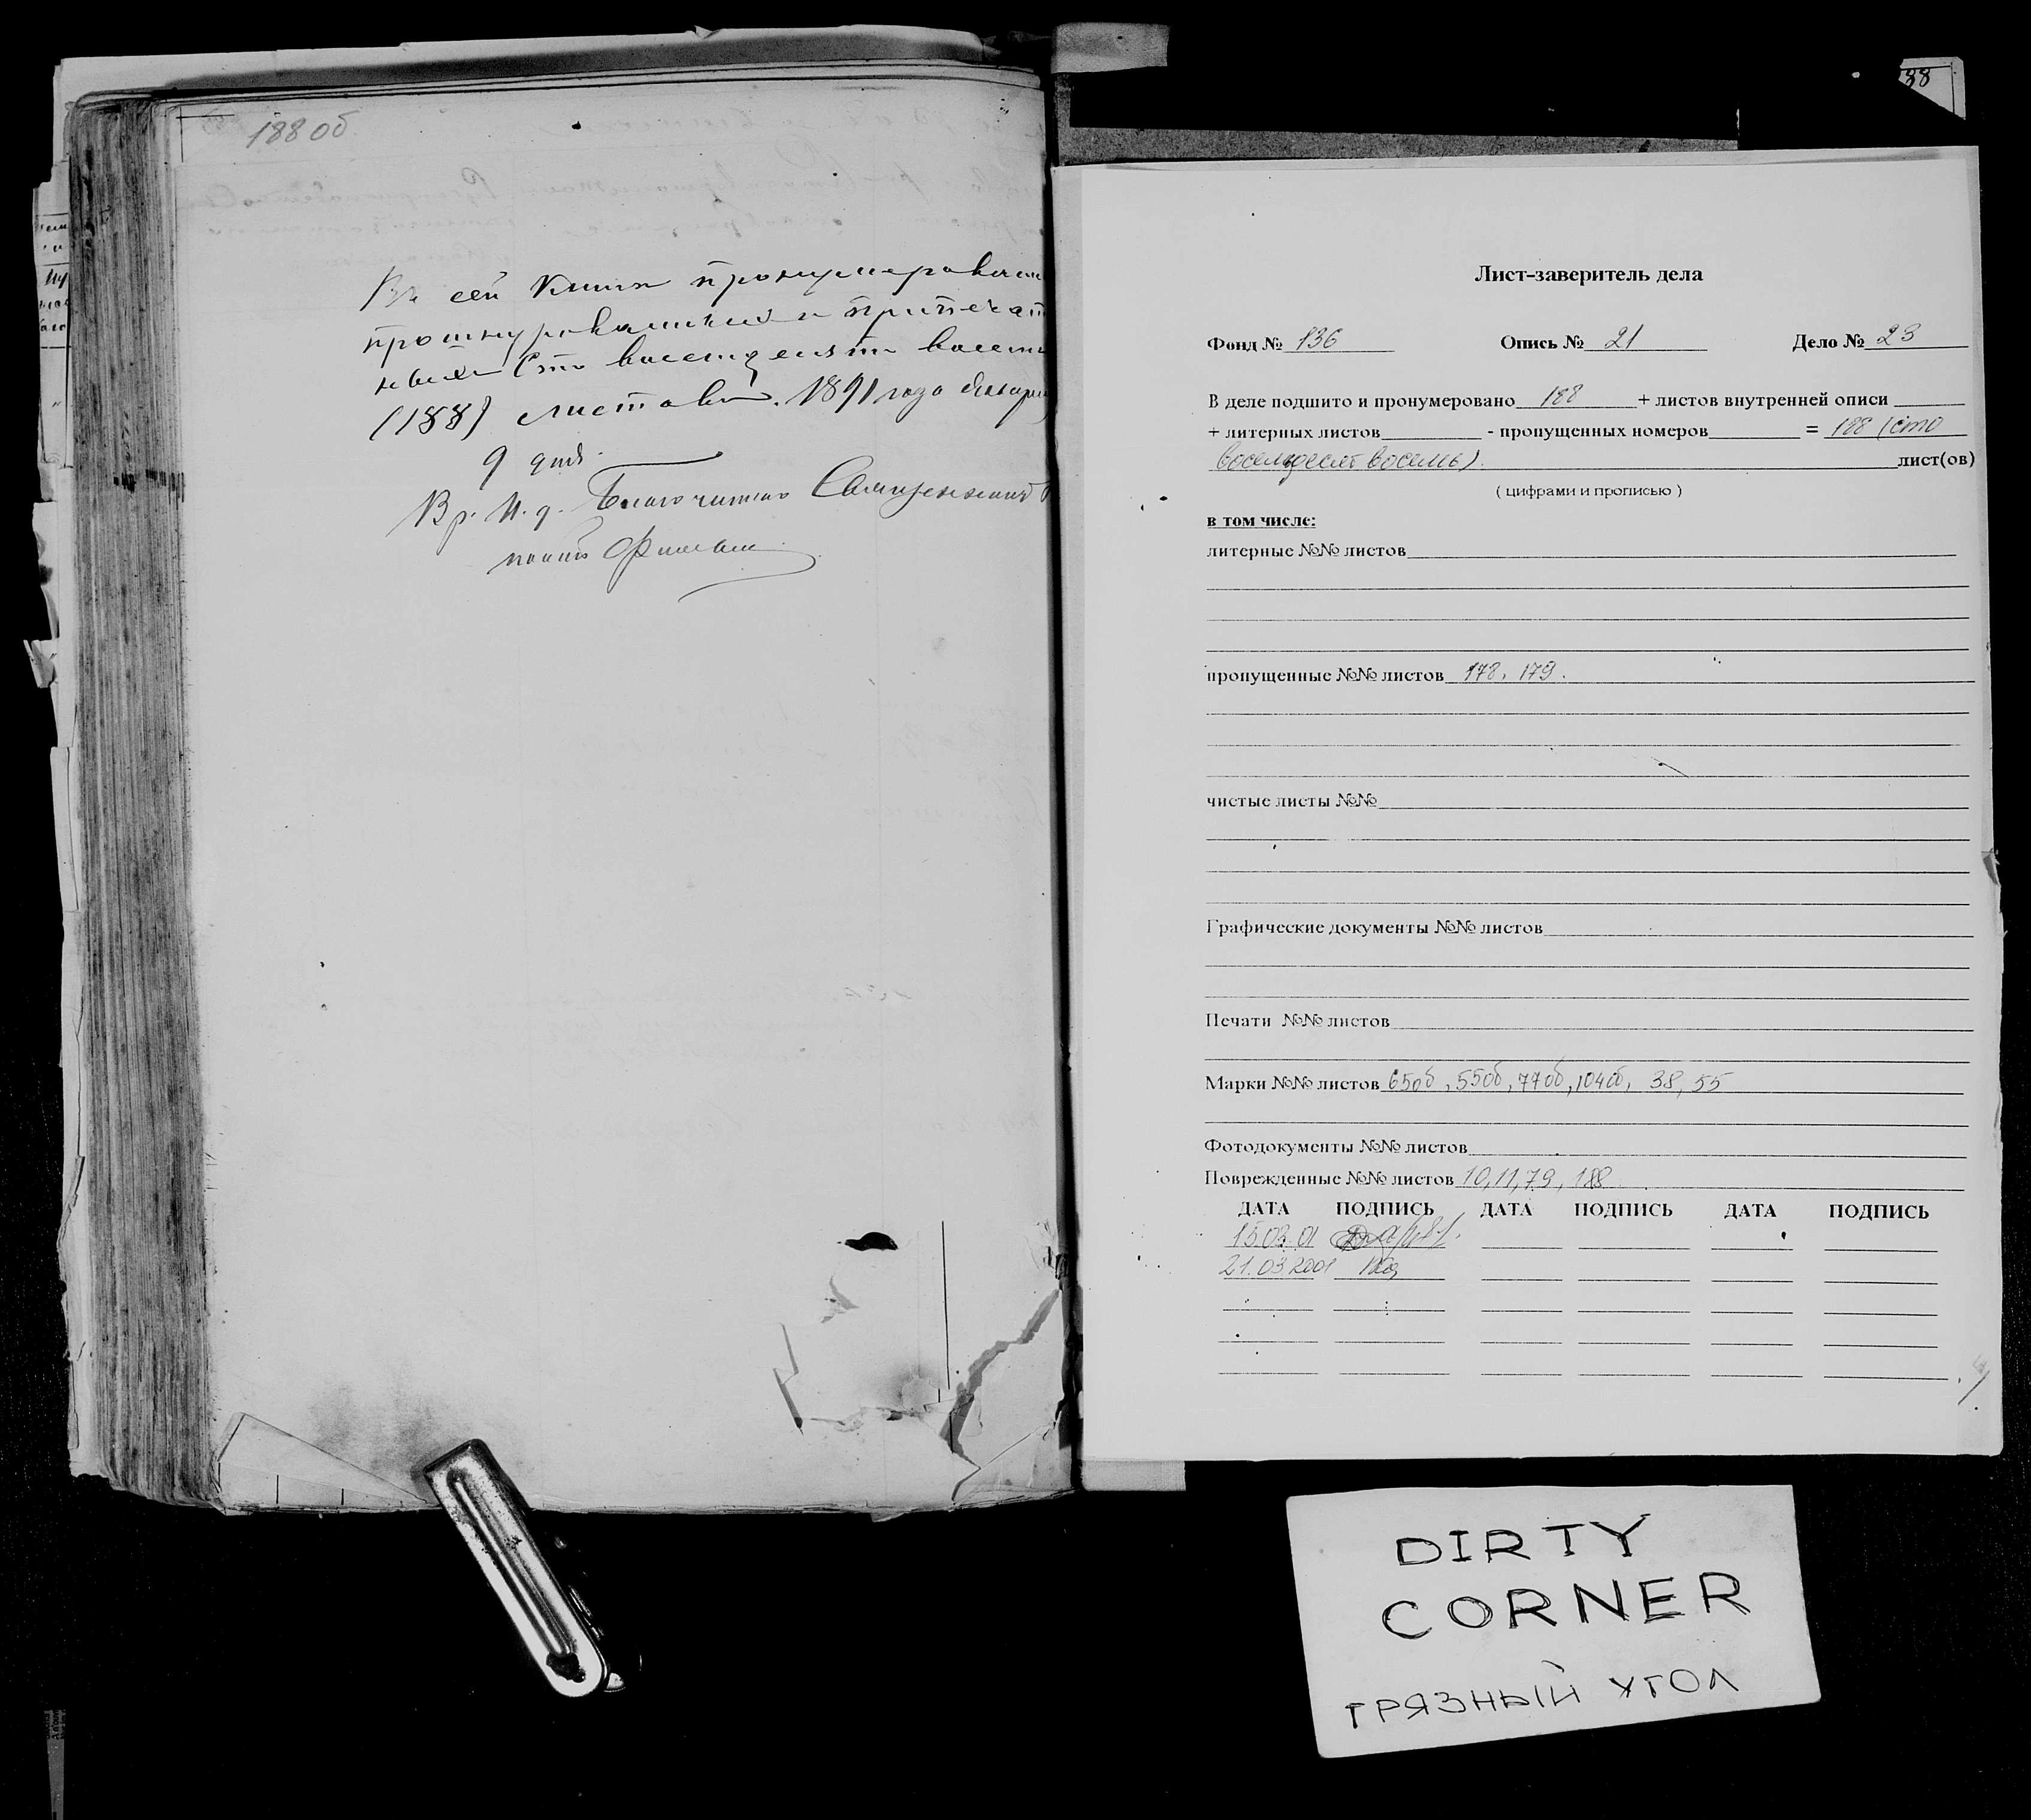 188 об
88
Въ сей книгѣ пронумерован
прошнурованныхъ и припечат
ныхъ Сто восемдесятъ восемь
(188) листовъ. 1891 года Января
9 дня.
Вр. И. д. Благочиннаго Священникъ
Лист-заверитель дела
Фонд № 136 Опись № 21 Дело № 23
В деле подшито и пронумеровано 188 + листов внутренней описи
+ литерных листов - пропущенных номеров = 188 (сто
восемьдесят восемь) лист(ов)
( цифрами и прописью )
в том числе:
литерные №№ листов
пропущенные №№ листов 178, 179.
чистые листы №№
Графические документы №№ листов
Печати №№ листов
Марки №№ листов 65об, 55об, 77об, 104об, 38, 55
Фотодокументы №№ листов
Поврежденные №№ листов 10, 11, 79, 188
ДАТА ПОДПИСЬ ДАТА ПОДПИСЬ ДАТА ПОДПИСЬ
15.03.01
21.03.2001
DIRTY
CORNER
ГРЯЗНЫЙ УГОЛ